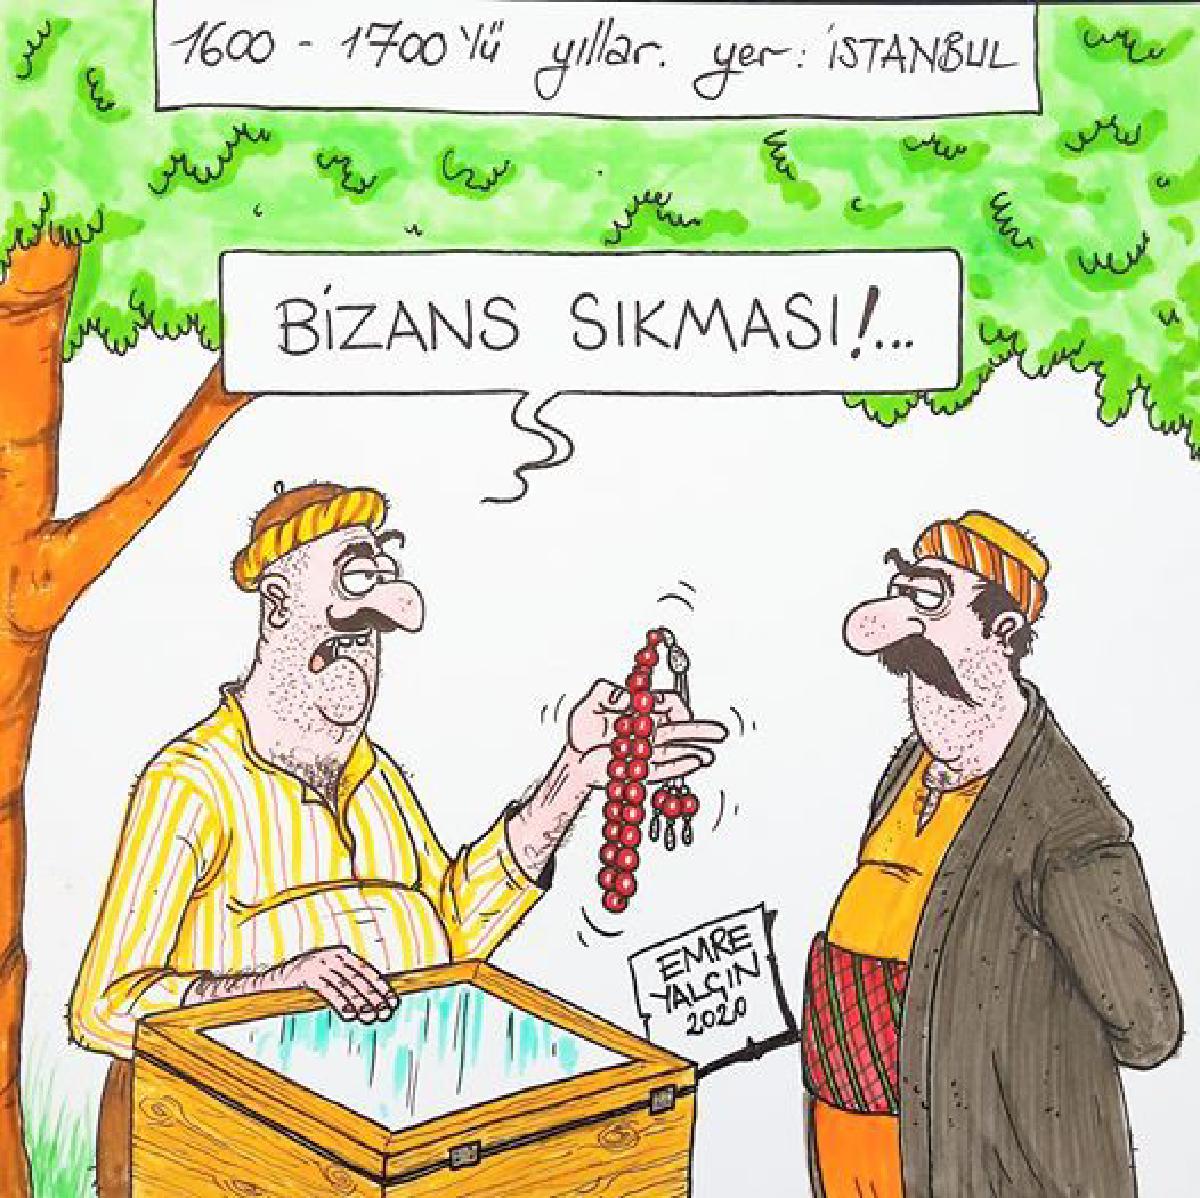 1600 - 1700'lü yıllar. yer: İSTANBUL
BİZANS SIKMASI!...
EMRE
YALÇIN
2020